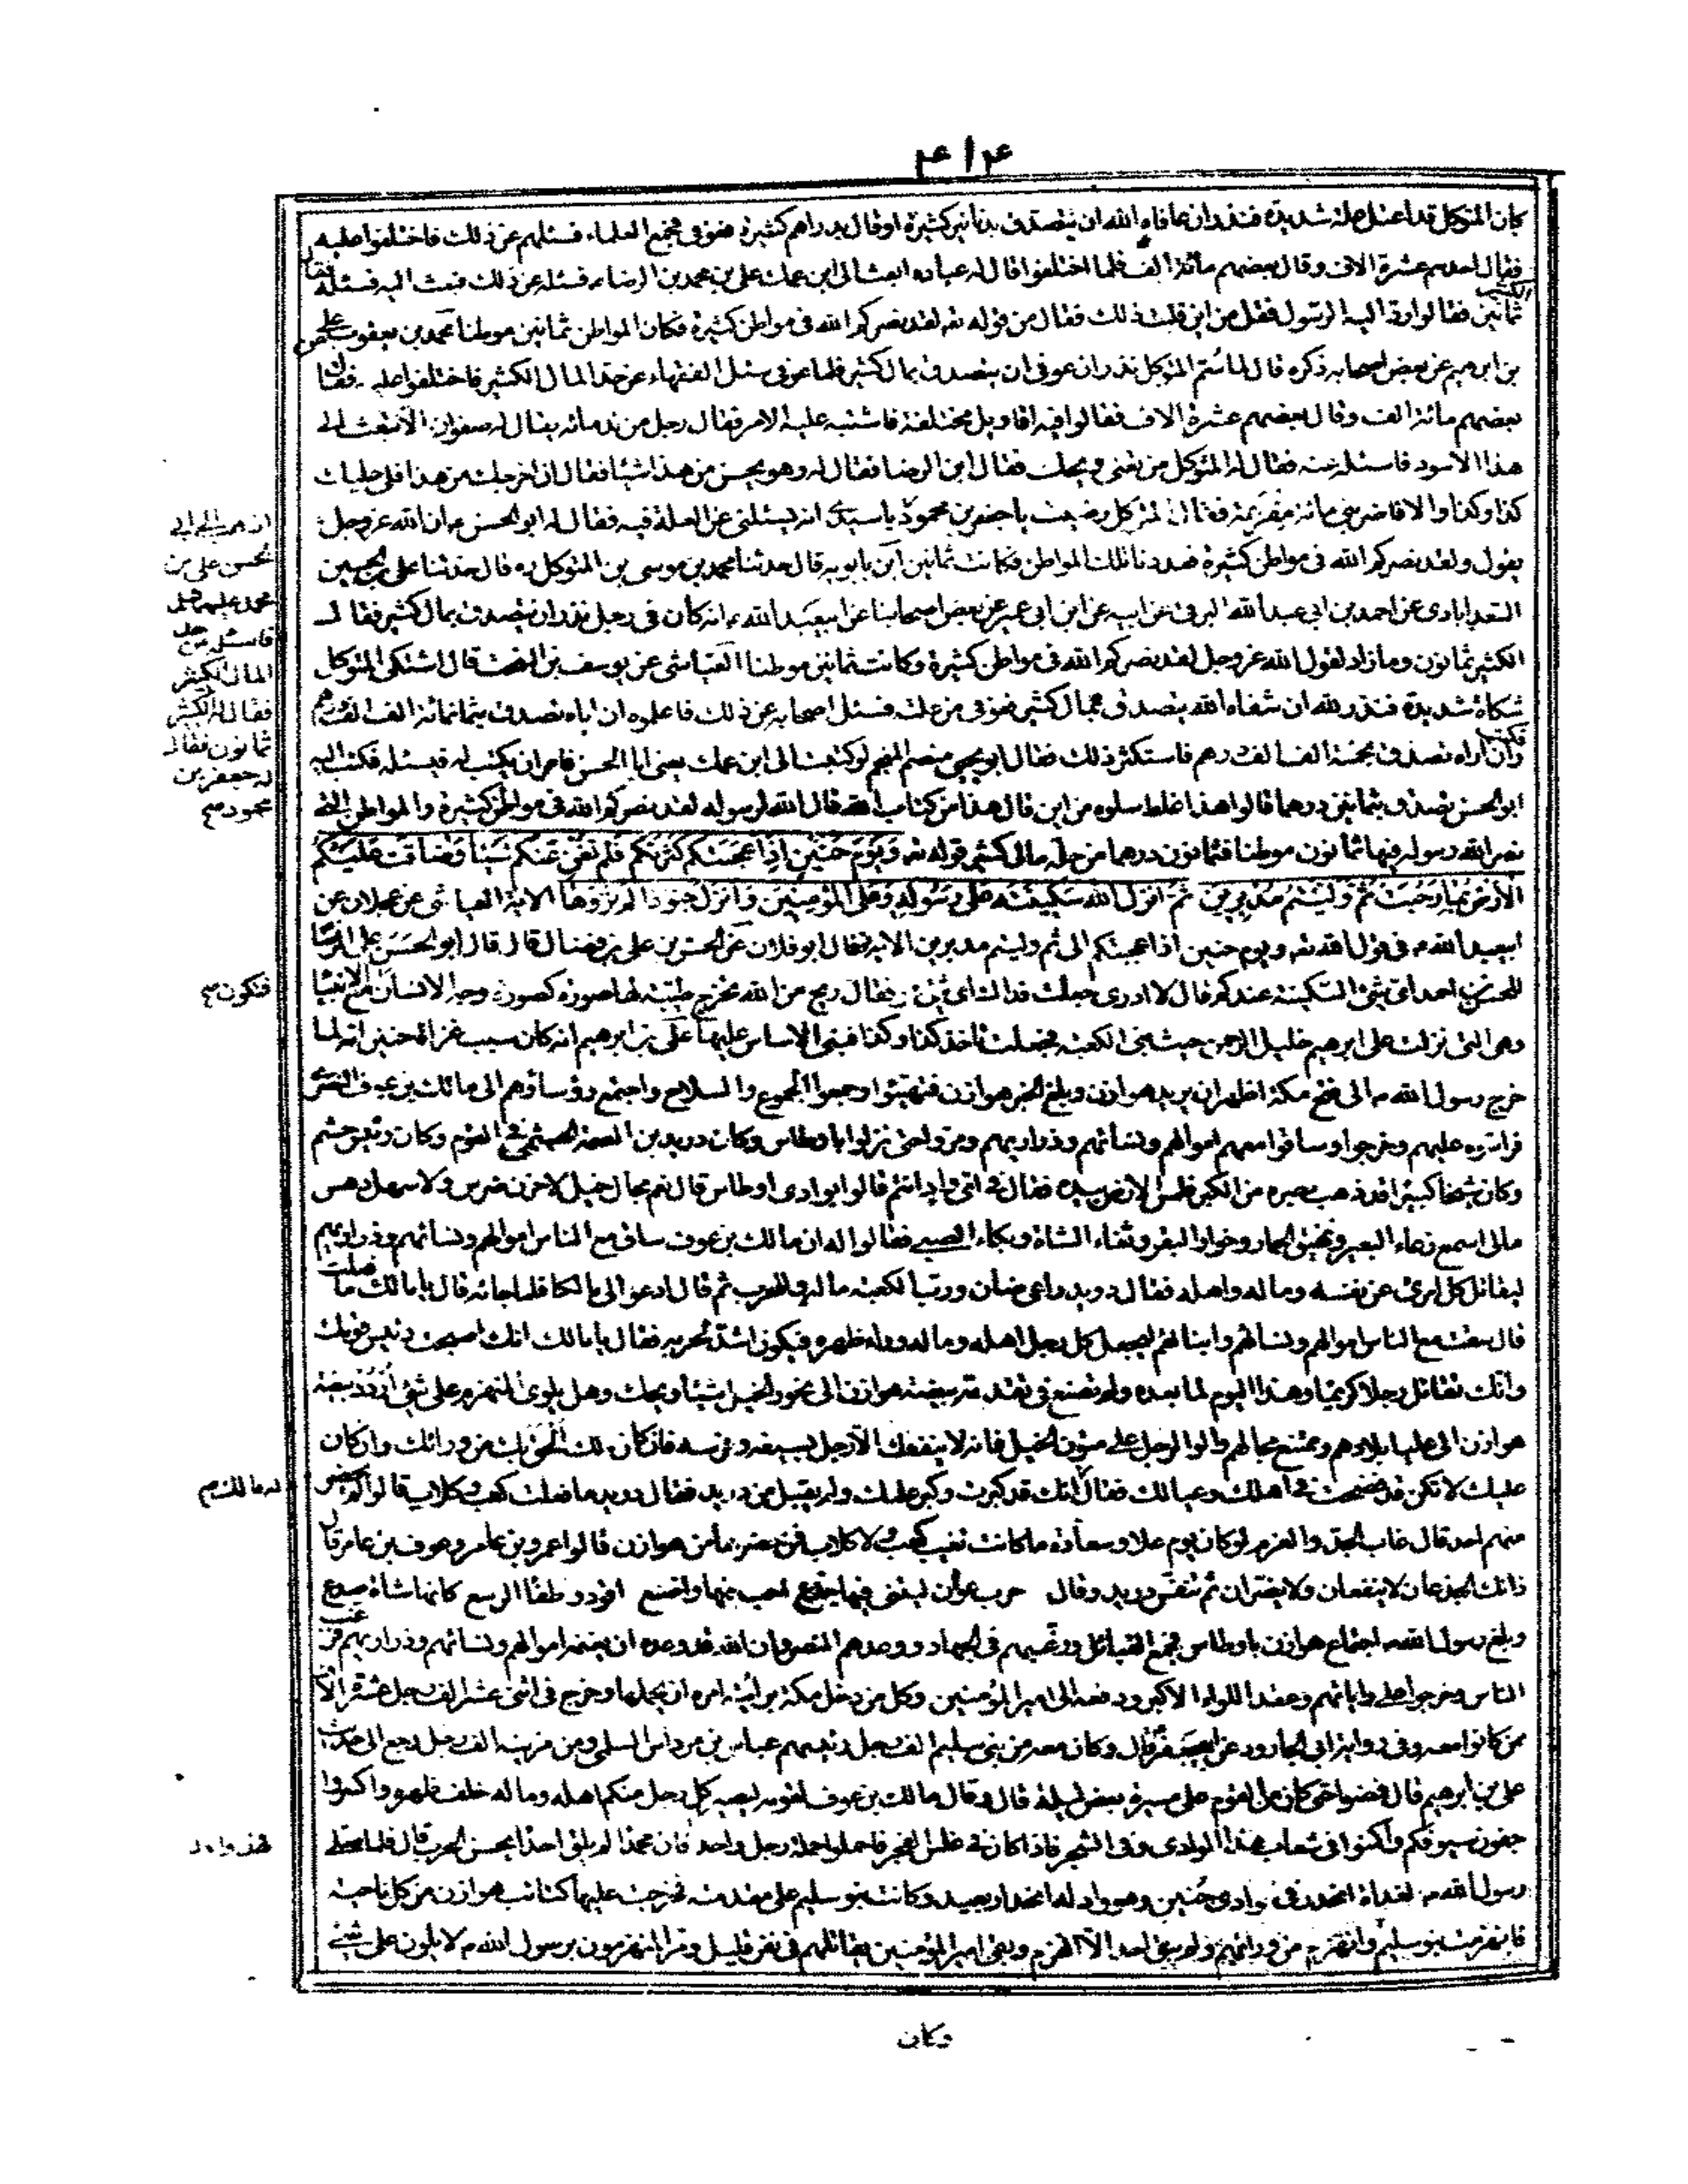 ۴۱۴
كان المتوكل قد اعتل علة شديدة فنذر ان عافاه الله ان يتصدق بدنانير كثيرة او قال بدراهم كثيرة فعوفى فجمع العلماء فسئلهم عن ذلك فاختلفوا عليه
فقال احدهم عشرة الاف وقال بعضهم مائة الف فلما اختلفوا قال له عباده ابعث الى ابن عمك على بن محمد بن الرضا ع فسئله عن ذلك فبعث اليه فسئله فقال
ثمانين فقالوا رد اليه الرسول فقل من اين قلت ذلك فقال من قوله تع لقد نصركم الله فى مواطن كثيرة فكان المواطن ثمانين موطنا محمد بن يعقوب عن على
بن ابرهيم عن بعض اصحابه ذكره قال لما سم المتوكل نذر ان عوفى ان يتصدق بمال كثير فلما عوفى سئل الفقهاء عن حد المال الكثير فاختلفوا عليه فقال
بعضهم مائة الف وقال بعضهم عشرة الاف فقالوا فيه اقاويل مختلفة فاشتبه عليه الامر فقال رجل من ندمائه يقال له صفوان الا تبعث الى
هذا الاسود فاسئله عنه فقال له المتوكل من تعنى ويحك فقال ابن الرضا فقال له وهو يحسن من هذا شيئا فقال ان اخرجك من هذا فلى عليك
كذا وكذا والا فاضربنى مائة مقرعة فقال المتوكل رضيت يا جعفر بن محمود
يقول ولقد نصركم الله فى مواطن كثيرة فعددنا تلك المواطن فكانت ثمانين ابن بابويه قال حدثنا محمد بن موسى بن المتوكل ره قال حدثنا على بن الحسين
السعدابادى عن احمد بن ابى عبد الله البرقى عن ابيه عن ابن ابى عمير عن بعض اصحابنا عن ابيعبد الله ع انه كان فى رجل نذر ان يتصدق بمال كثير فقال
الكثير ثمانون وما زاد لقول الله عز وجل لقد نصركم الله فى مواطن كثيرة وكانت ثمانين موطنا العياشى عن يوسف بن السخت قال اشتكى المتوكل
شكاة شديدة فنذر لله ان شفاه الله يتصدق بمال كثير فعوفى من علته فسئل اصحابه عن ذلك فاعلموه ان اباه تصدق بثمانمائة الف الف درهم
وان اراه تصدق بخمسة الف الف درهم فاستكثر ذلك فقال ابو يحيى بن منصم المنجم لو كتبت الى ابن عمك يعنى ابا الحسن فامر ان يكتب له فيسئله فكتب اليه
ابو الحسن تصدق بثمانين درهما قالوا هذا غلط سلوه من اين قال هذا من كتاب الله قال الله لرسوله لقد نصركم الله فى مواطن كثيرة والمواطن التى
نصر الله رسوله فيها ثمانون موطنا فثمانون درهما من حله مال كثير قوله تع وَيَوْمَ حُنَيْنٍ اِذْ اَعْجَبَتْكُمْ كَثْرَتُكُمْ فَلَمْ تُغْنِ عَنْكُمْ شَيْئاً وَضَاقَتْ عَلَيْكُمُ
الْاَرْضُ بِمَا رَحُبَتْ ثُمَّ وَلَّيْتُمْ مُدْبِرِينَ ثُمَّ اَنْزَلَ اللهُ سَكِينَتَهُ عَلَى رَسُولِهِ وَعَلَى الْمُؤْمِنِينَ وَاَنْزَلَ جُنُوداً لَمْ تَرَوْهَا الاية العياشى عن عجلان عن
ابيعبد الله ع فى قول الله تع ويوم حنين اذ اعجبتكم الى ثم وليتم مدبرين الاية فقال ابو فلان عن الحسن بن على بن فضال قال قال ابو الحسن على الرضا
للحسن بن احمد اى شئ السكينة عندكم قال لا ادرى جعلت فداك اى شئ هى فقال ريح من الله تخرج طيبة لها صورة كصورة وجه الانسان مع الانبياء
وهى التى نزلت على ابرهيم خليل الرحمن حيث بنى الكعبة فجعلت تاخذ كذا وكذا فبنى الاساس عليها على بن ابرهيم انه كان سبب غزاة حنين انه لما
خرج رسول الله ص الى فتح مكة اظهر انه يريد هوازن وبلغ الخبر هوازن فتهيئوا وجمعوا الجموع والسلاح واجتمع رؤساؤهم الى مالك بن عوف النضرى
فرأسوه عليهم وخرجوا وساقوا معهم اموالهم ونسائهم وذراريهم ومروا حتى نزلوا باوطاس وكان دريد بن الصمة الجشمى فى القوم وكان رئيس جشم
وكان شيخا كبيرا قد ذهب بصره من الكبر فلمس الارض بيده فقال فى اى واد انتم قالوا بوادى اوطاس قال نعم مجال خيل لا حزن ضرس ولا سهل دهس
مالى اسمع رغاء البعير ونهيق الحمار وخوار البقر وثغاء الشاة وبكاء الصبى فقالوا له ان مالك بن عوف ساق مع الناس اموالهم ونسائهم وذراريهم
ليقاتل كل امرئ عن نفسه وماله واهله فقال دريد راعى ضان ورب الكعبة ماله وللحرب ثم قال ادعوا لى مالكا فلما جائه قال يا مالك ما فعلت
قال سقت مع الناس اموالهم ونسائهم وابنائهم ليجعل كل رجل اهله وماله وراء ظهره فيكون اشد لحربه فقال يا مالك انك اصبحت رئيس قومك
وانك تقاتل رجلا كريما وهذا اليوم لما بعده ولم تصنع فى تقدمة بيضة هوازن الى نحور الخيل شيئا ويحك وهل يلوى المنهزم على شئ اردد بيضة
هوازن الى عليا بلادهم وممتنع محالهم والق الرجال على متون الخيل فانه لا ينفعك الا رجل بسيفه وفرسه فان كان لك لحق بك من ورائك وان كان
عليك لا تكون قد فضحت فى اهلك وعيالك فقال له انك قد كبرت وكبر علمك ولم يقبل من دريد فقال دريد ما فعلت كعب وكلاب قالوا لم يحضر
منهم احد قال غاب الجد والحزم لو كان يوم علا وسعادة ما كانت تغيب كعب ولا كلاب فمن حضرها من هوازن قالوا عمرو بن عامر وعوف بن عامر قال
ذانك الجذعان لا ينفعان ولا يضران ثم تنفس دريد وقال حرب عوان ليتنى فيها جذع اخب فيها واضع اقود وطفاء الزمع كانها شاة صدع
وبلغ رسول الله ص اجتماع هوازن باوطاس فجمع القبائل ورغبهم فى الجهاد ووعدهم النصر وان الله قد وعده ان يغنمه اموالهم ونسائهم وذراريهم فرغب
الناس وخرجوا على راياتهم وعقد اللواء الاكبر ودفعه الى امير المؤمنين وكل من دخل مكة براية امره ان يحملها وخرج فى اثنى عشر الف رجل عشرة الاف
ممن كانوا معه وفى رواية ابى الجارود عن ابيجعفر قال وكان معه من بنى سليم الف رجل رئيسهم عباس بن مرداس السلمى ومن مزينة الف رجل رجع الى حديث
على بن ابرهيم قال فمضوا حتى كان من القوم على مسيرة بعض ليلة قال وقال مالك بن عوف لقومه ليصير كل رجل منكم اهله وماله خلف ظهره واكسروا
جفون سيوفكم واكمنوا فى شعاب هذا الوادى وفى الشجر فاذا كان فى غلس الفجر فاحملوا حملة رجل واحد فان محمدا لم يلق احدا يحسن الحرب قال فلما صلى
رسول الله ص الغداة انحدر فى وادى حنين وهو واد له انحدار بعيد وكانت بنو سليم على مقدمته فخرجت عليها كتائب هوازن من كل ناحية
فانهزمت بنو سليم وانهزم من ورائهم ولم يبق احد الا انهزم وبقى امير المؤمنين يقاتلهم فى نفر قليل ومر المنهزمون برسول الله ص لا يلون على شئ
الحسن على بن
محمد
فاسئله عن حد
المال الكثير
فقال له الكثير
ثمانون فقال
له جعفر بن
محمود صح
فتكون صح
له مالك صح
وكان